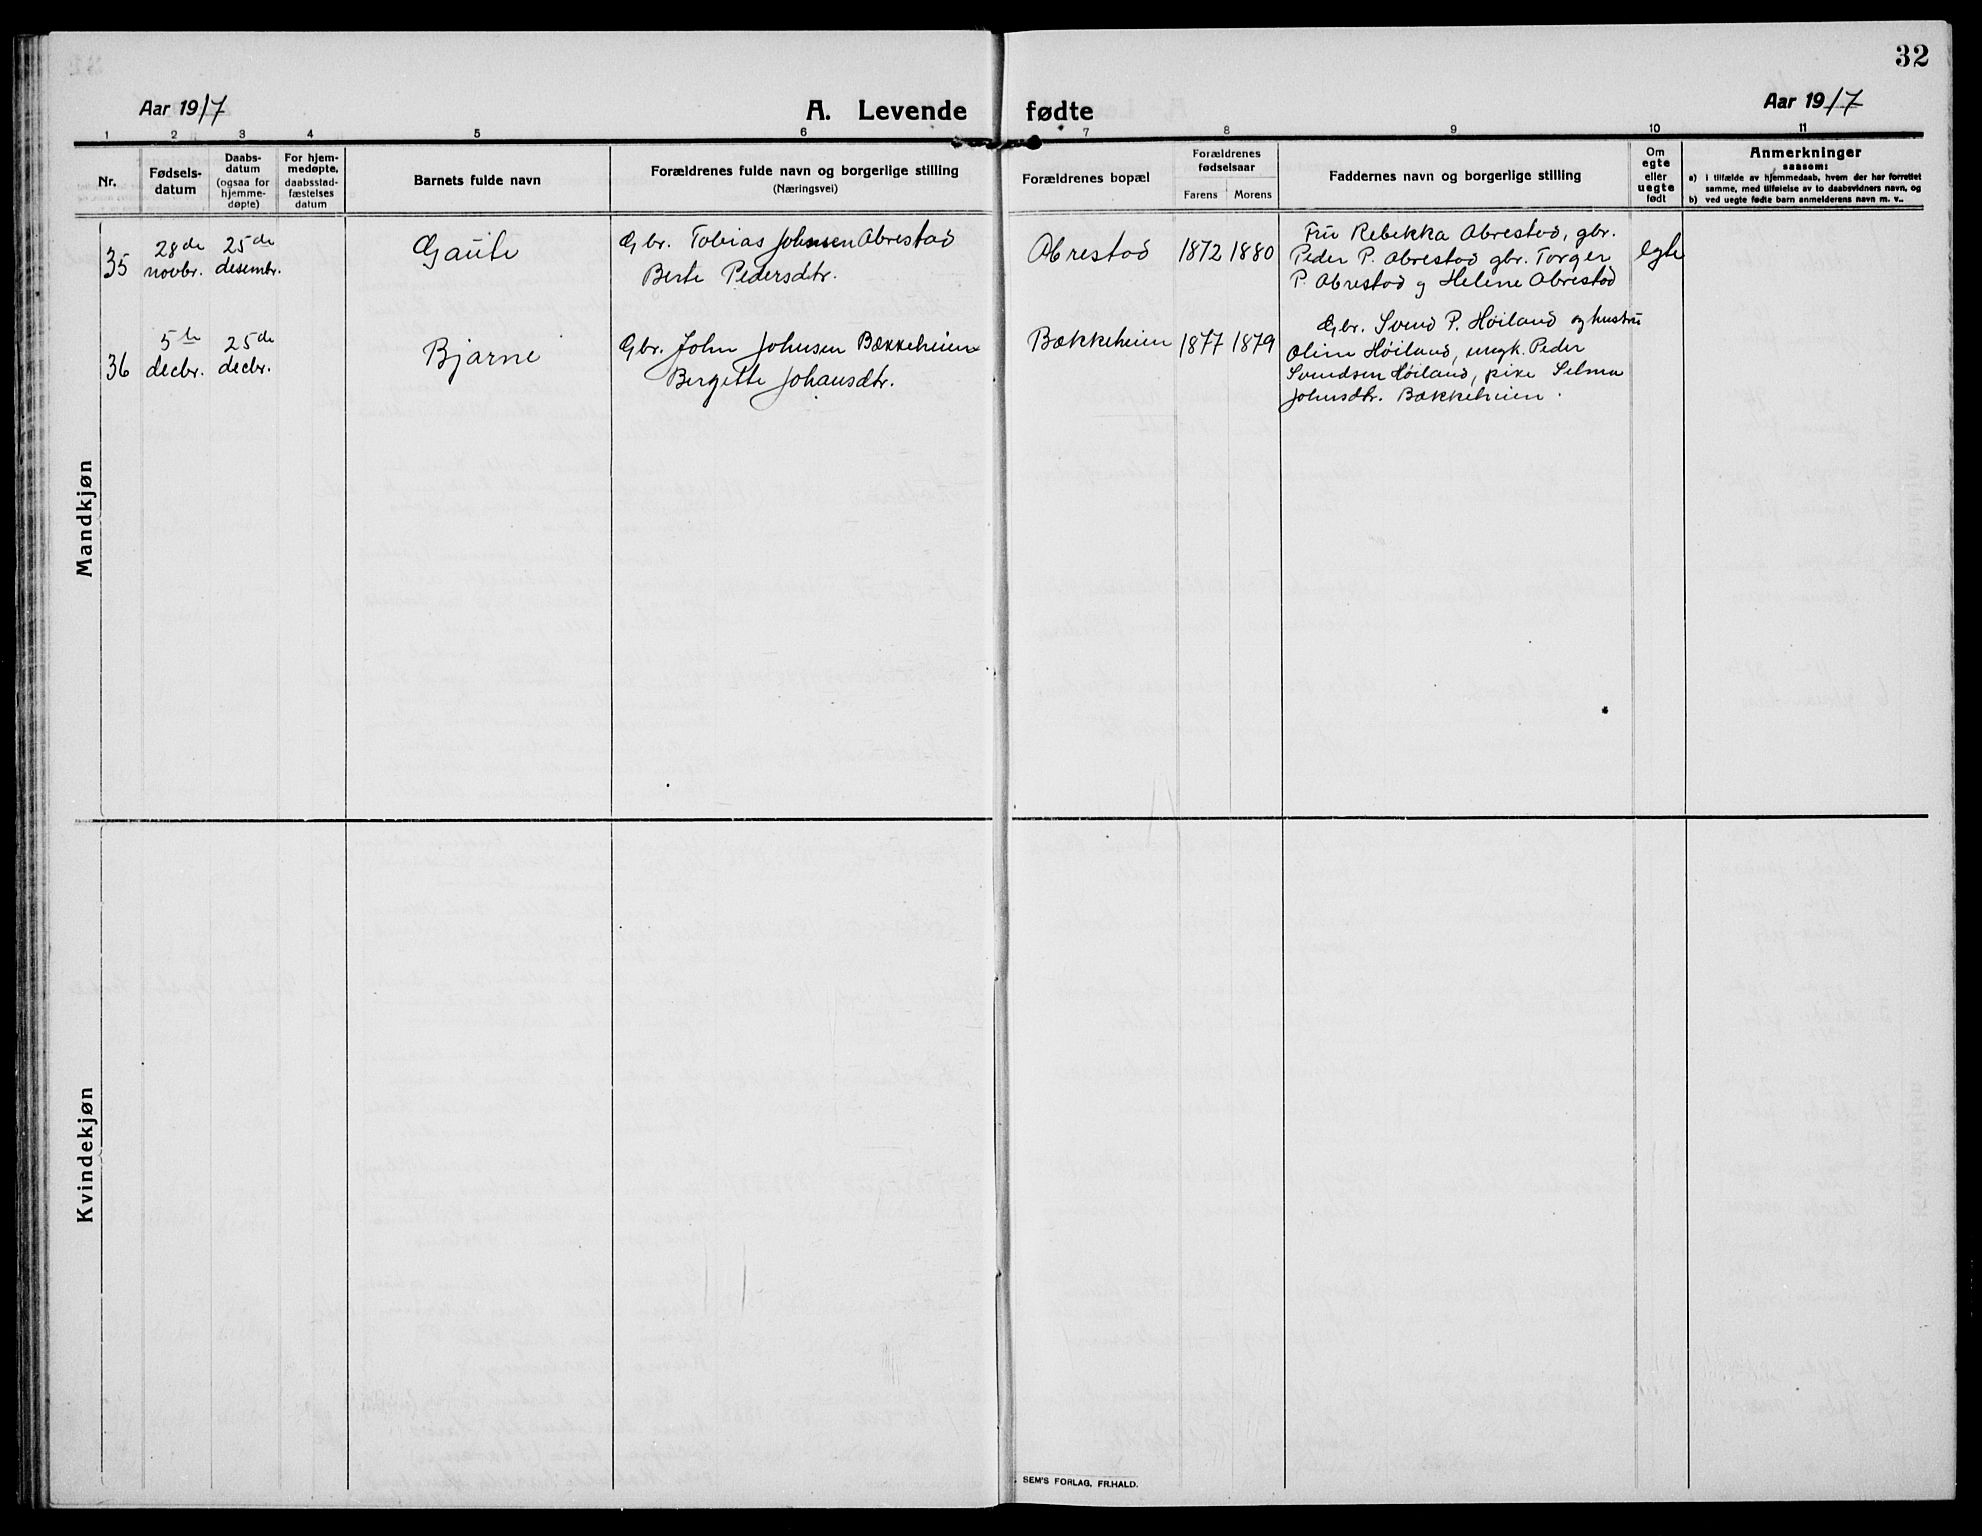 32
Aar 1917
A. Levende fødte
Aar 1917
1 2 3 4 5 6 7 8 9 10 11
Nr.
Fødsels-
datum
Daabs-
datum
(ogsaa for
hjemme-
døpte)
For hjem-
medøpte,
daabsstad-
fæstelses
datum
Barnets fulde navn
Forældrenes fulde navn og borgerlige stilling
(Næringsvei)
Forældrenes bopæl
Forældrenes
fødselsaar
Farens Morens
Faddernes navn og borgerlige stilling
Om
egte
eller
uegte
født
Anmerkninger
saasom:
a) i tilfælde av hjemmedaab, hvem der har forrettet
samme, med tilføielse av to daabsvidners navn, og
b) ved uegte fødte barn anmelderens navn m. v..
Mandkjøn
35
28de
novbr.
25de
desembr.
Gaute
Gbr. Tobias Johnsen Abrestad
Berte Pedersdtr.
Abrestad
1872 1880
Fru Rebekka Abrestad, gbr.
Peder P. Abrestad gbr. Torger
P. Abrestad og Helene Abrestad
egte
36
5te
decbr.
25de
decbr.
Bjarne
Gbr. John Johnsen Bækkeheien
Bergitte Johansdtr.
Bækkeheien
1877 1879
Gbr. Svend P. Høiland og hustru
Oline Høiland, ungk. Peder
Svendsen Høiland, pike Selma
Johnsdtr. Bækkeheien.
Kvindekjøn
SEM'S FORLAG, FR.HALD.